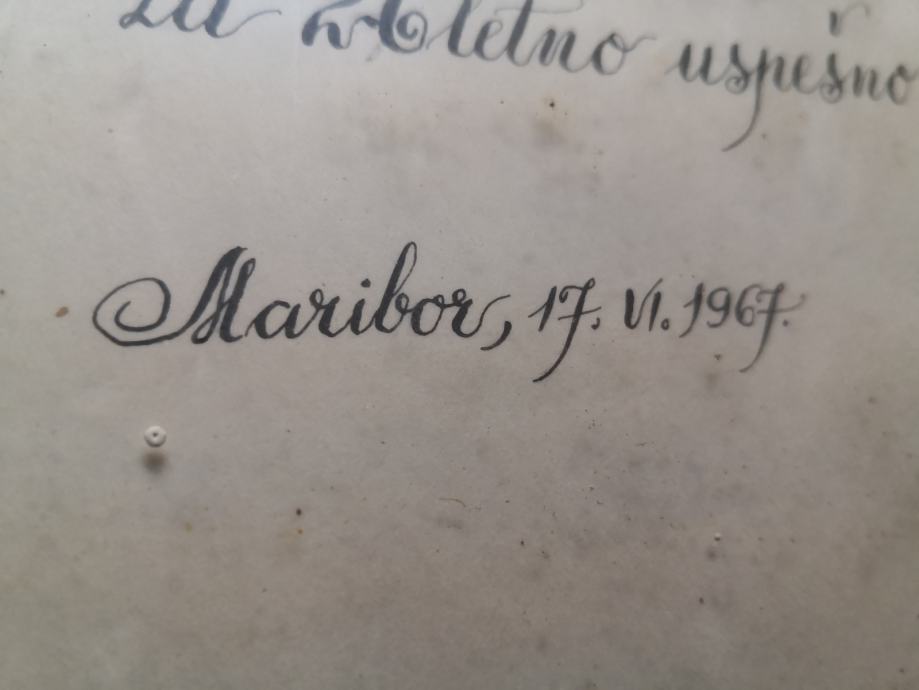 letno uspešno
Maribor, 17. VI. 1967.